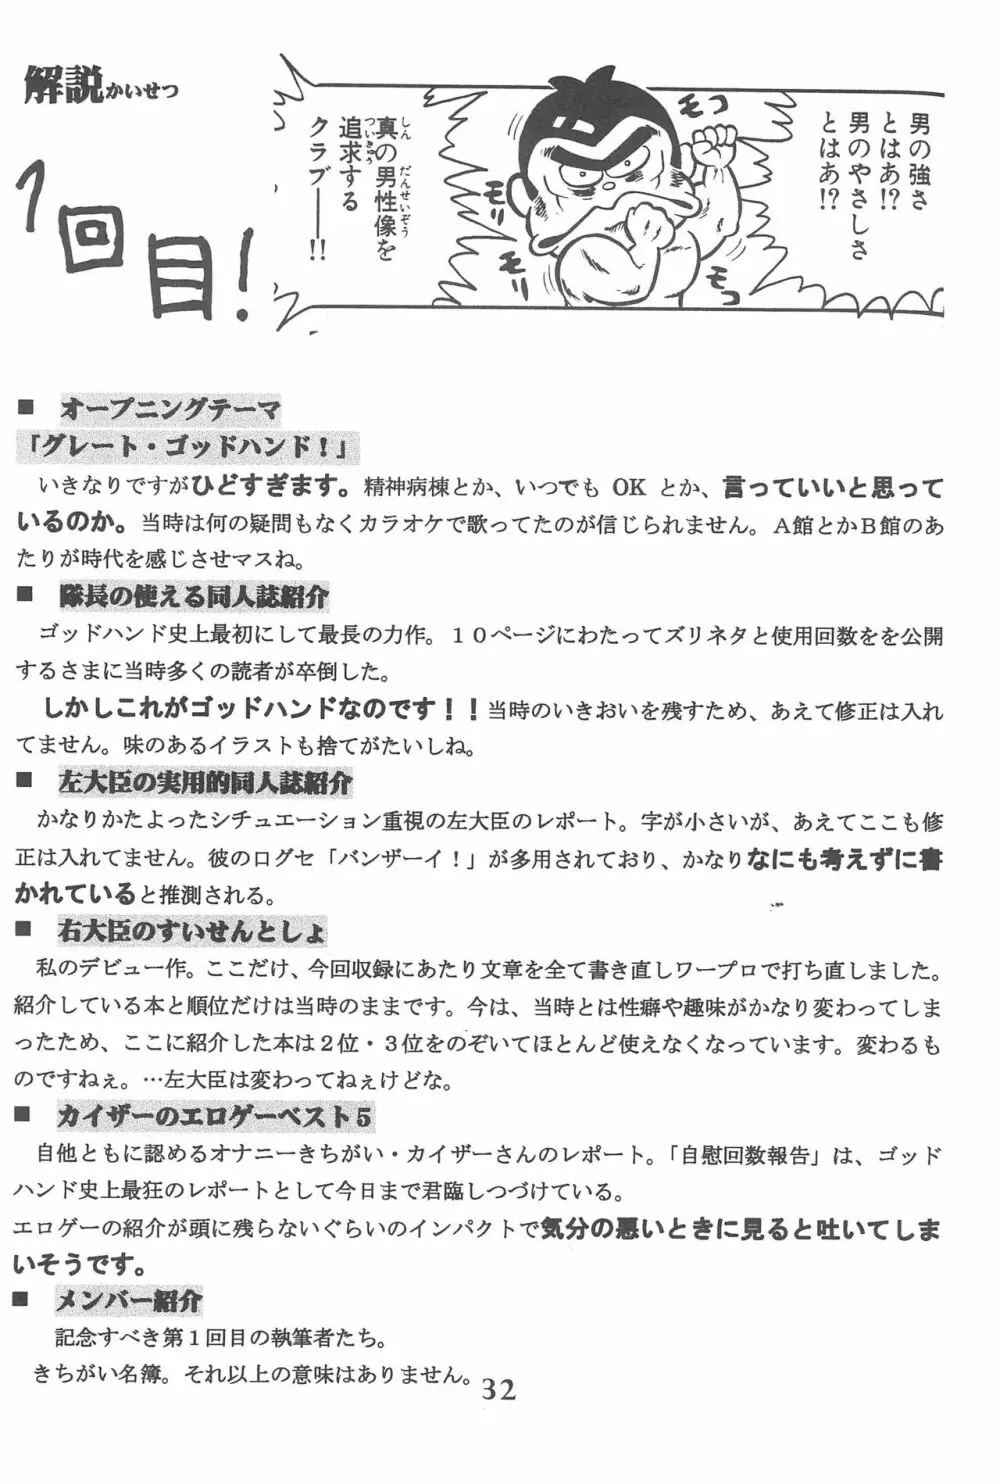 解説かいせつ
1回目！
男の強さ
とはあ!?
男のやさしさ
とはあ!?
モコ
モコ
モリ
モリ
真の男性像を
しん だんせいぞう
追求する
ついきゅう
クラブ――!!
■ オープニングテーマ
「グレート・ゴッドハンド！」
いきなりですがひどすぎます。精神病棟とか、いつでも OK とか、言っていいと思って
いるのか。当時は何の疑問もなくカラオケで歌ってたのが信じられません。A館とかB館のあ
たりが時代を感じさせマスね。
■ 隊長の使える同人誌紹介
ゴッドハンド史上最初にして最長の力作。１０ページにわたってズリネタと使用回数をを公開
するさまに当時多くの読者が卒倒した。
しかしこれがゴッドハンドなのです！！当時のいきおいを残すため、あえて修正は入れ
てません。味のあるイラストも捨てがたいしね。
■ 左大臣の実用的同人誌紹介
かなりかたよったシチュエーション重視の左大臣のレポート。字が小さいが、あえてここも修
正は入れてません。彼のログセ「バンザーイ！」が多用されており、かなりなにも考えずに書
かれていると推測される。
■ 右大臣のすいせんとしょ
私のデビュー作。ここだけ、今回収録にあたり文章を全て書き直しワープロで打ち直しました。
紹介している本と順位だけは当時のままです。今は、当時とは性癖や趣味がかなり変わってしま
ったため、ここに紹介した本は２位・３位をのぞいてほとんど使えなくなっています。変わるも
のですねぇ。…左大臣は変わってねぇけどな。
■ カイザーのエロゲーベスト５
自他ともに認めるオナニーきちがい・カイザーさんのレポート。「自慰回数報告」は、ゴッド
ハンド史上最狂のレポートとして今日まで君臨しつづけている。
エロゲーの紹介が頭に残らないぐらいのインパクトで気分の悪いときに見ると吐いてしま
いそうです。
■ メンバー紹介
記念すべき第１回目の執筆者たち。
きちがい名簿。それ以上の意味はありません。
32